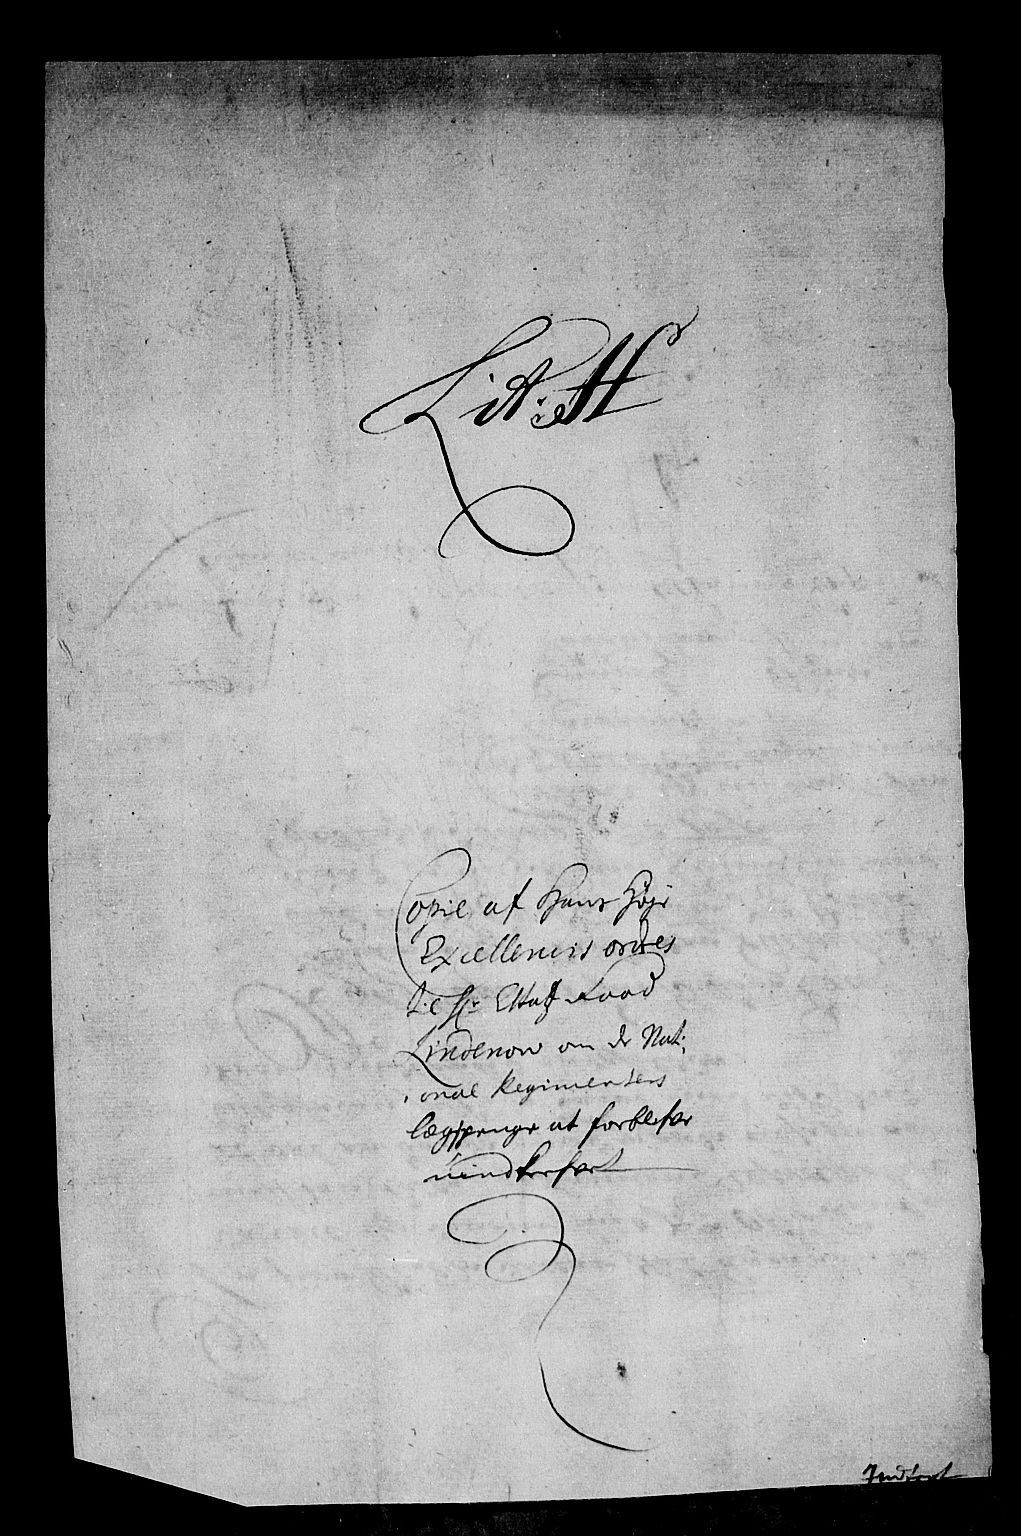 Lit: H
Copie af Hans Høje
Excellencis ordres
til Hr Ettatz Raad
Lindenow om de Nati-
onal Regimenters
lægspenge at forblefve
uindkrefvet
Indført